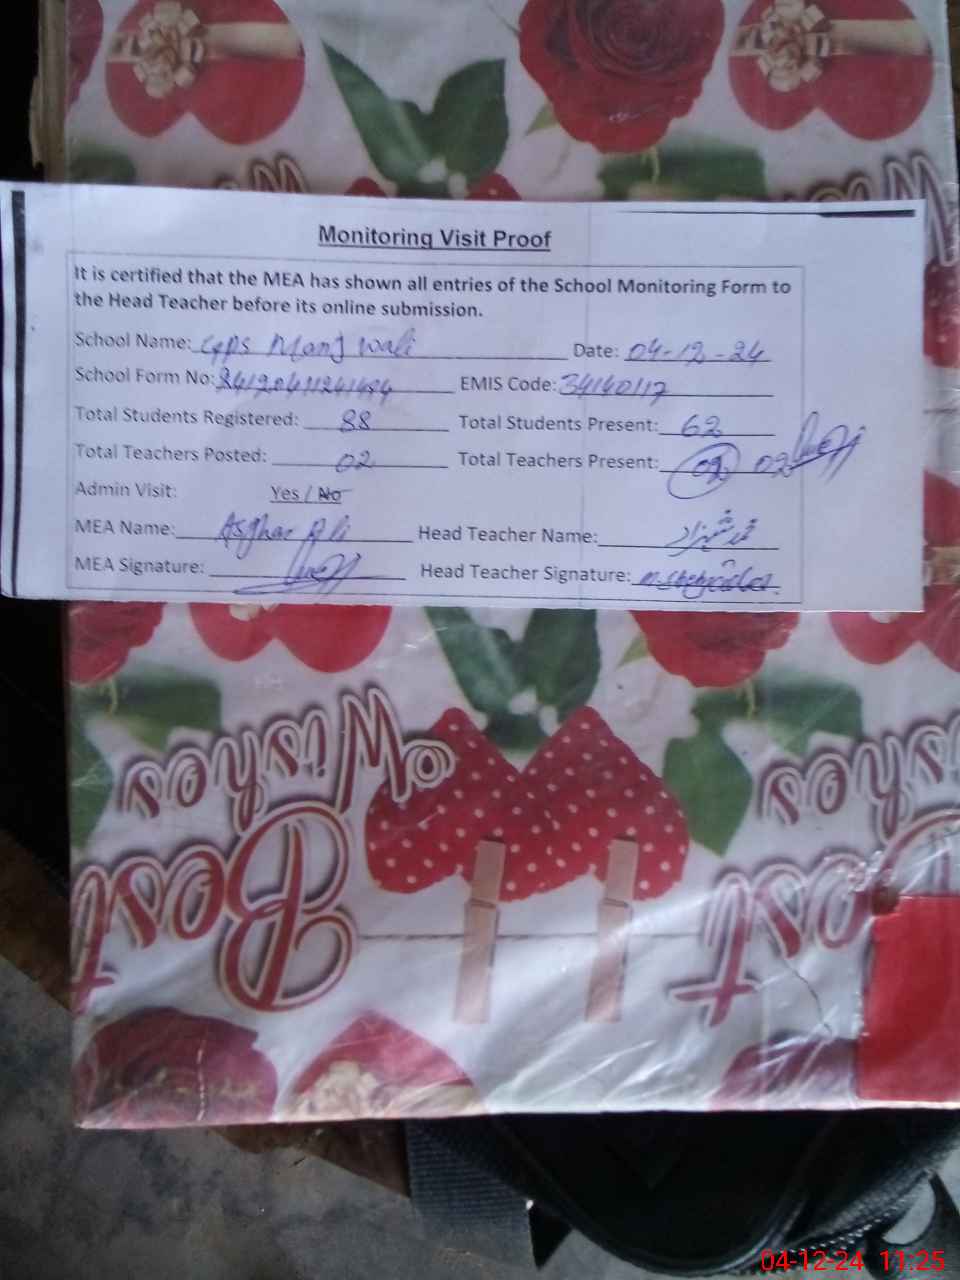 Monitoring Visit Proof
It is certified that the MEA has shown all entries of the School Monitoring Form to
the Head Teacher before its online submission.
School Name: GPS Manj Wali Date: 04-12-24
School Form No: EMIS Code: 34140117
Total Students Registered: 88 Total Students Present: 62
Total Teachers Posted: 02 Total Teachers Present: 02 02
Admin Visit: Yes / No
MEA Name: Asghar Ali Head Teacher Name: محمد شہزاد
MEA Signature: Head Teacher Signature: M. Shehzad
Wishes
Best
04-12-24 11:25